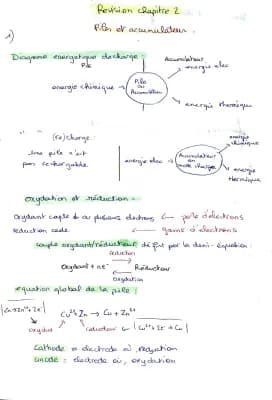 Révision chapitre 2
Piles et accumulateur.
1)
Diagramme énergétique décharge :
Pile
Accumulateur
énergie elec
énergie chimique
Pile
ou
Accumulateur
énergie thermique
(Re)charge :
une pile n'est
pas rechargeable
énergie elec
Accumulateur
en mode charge
énergie
chimique
énergie
thermique
Oxydation et réduction :
Oxydant capte 1 ou plusieurs électrons ← perte d'électrons
réduction cède ← gains d'électrons
couple oxydant/réducteur définit par la demi-équation :
réduction
Oxydant + ne⁻ Réducteur
Oxydation
équation global de la pile :
Cu²⁺ Zn → Cu + Zn²⁺
Oxydant
réducteur
Cu²⁺ 2e⁻ = Cu
Cathode = électrode où, réduction
Anode : électrode où, oxydation